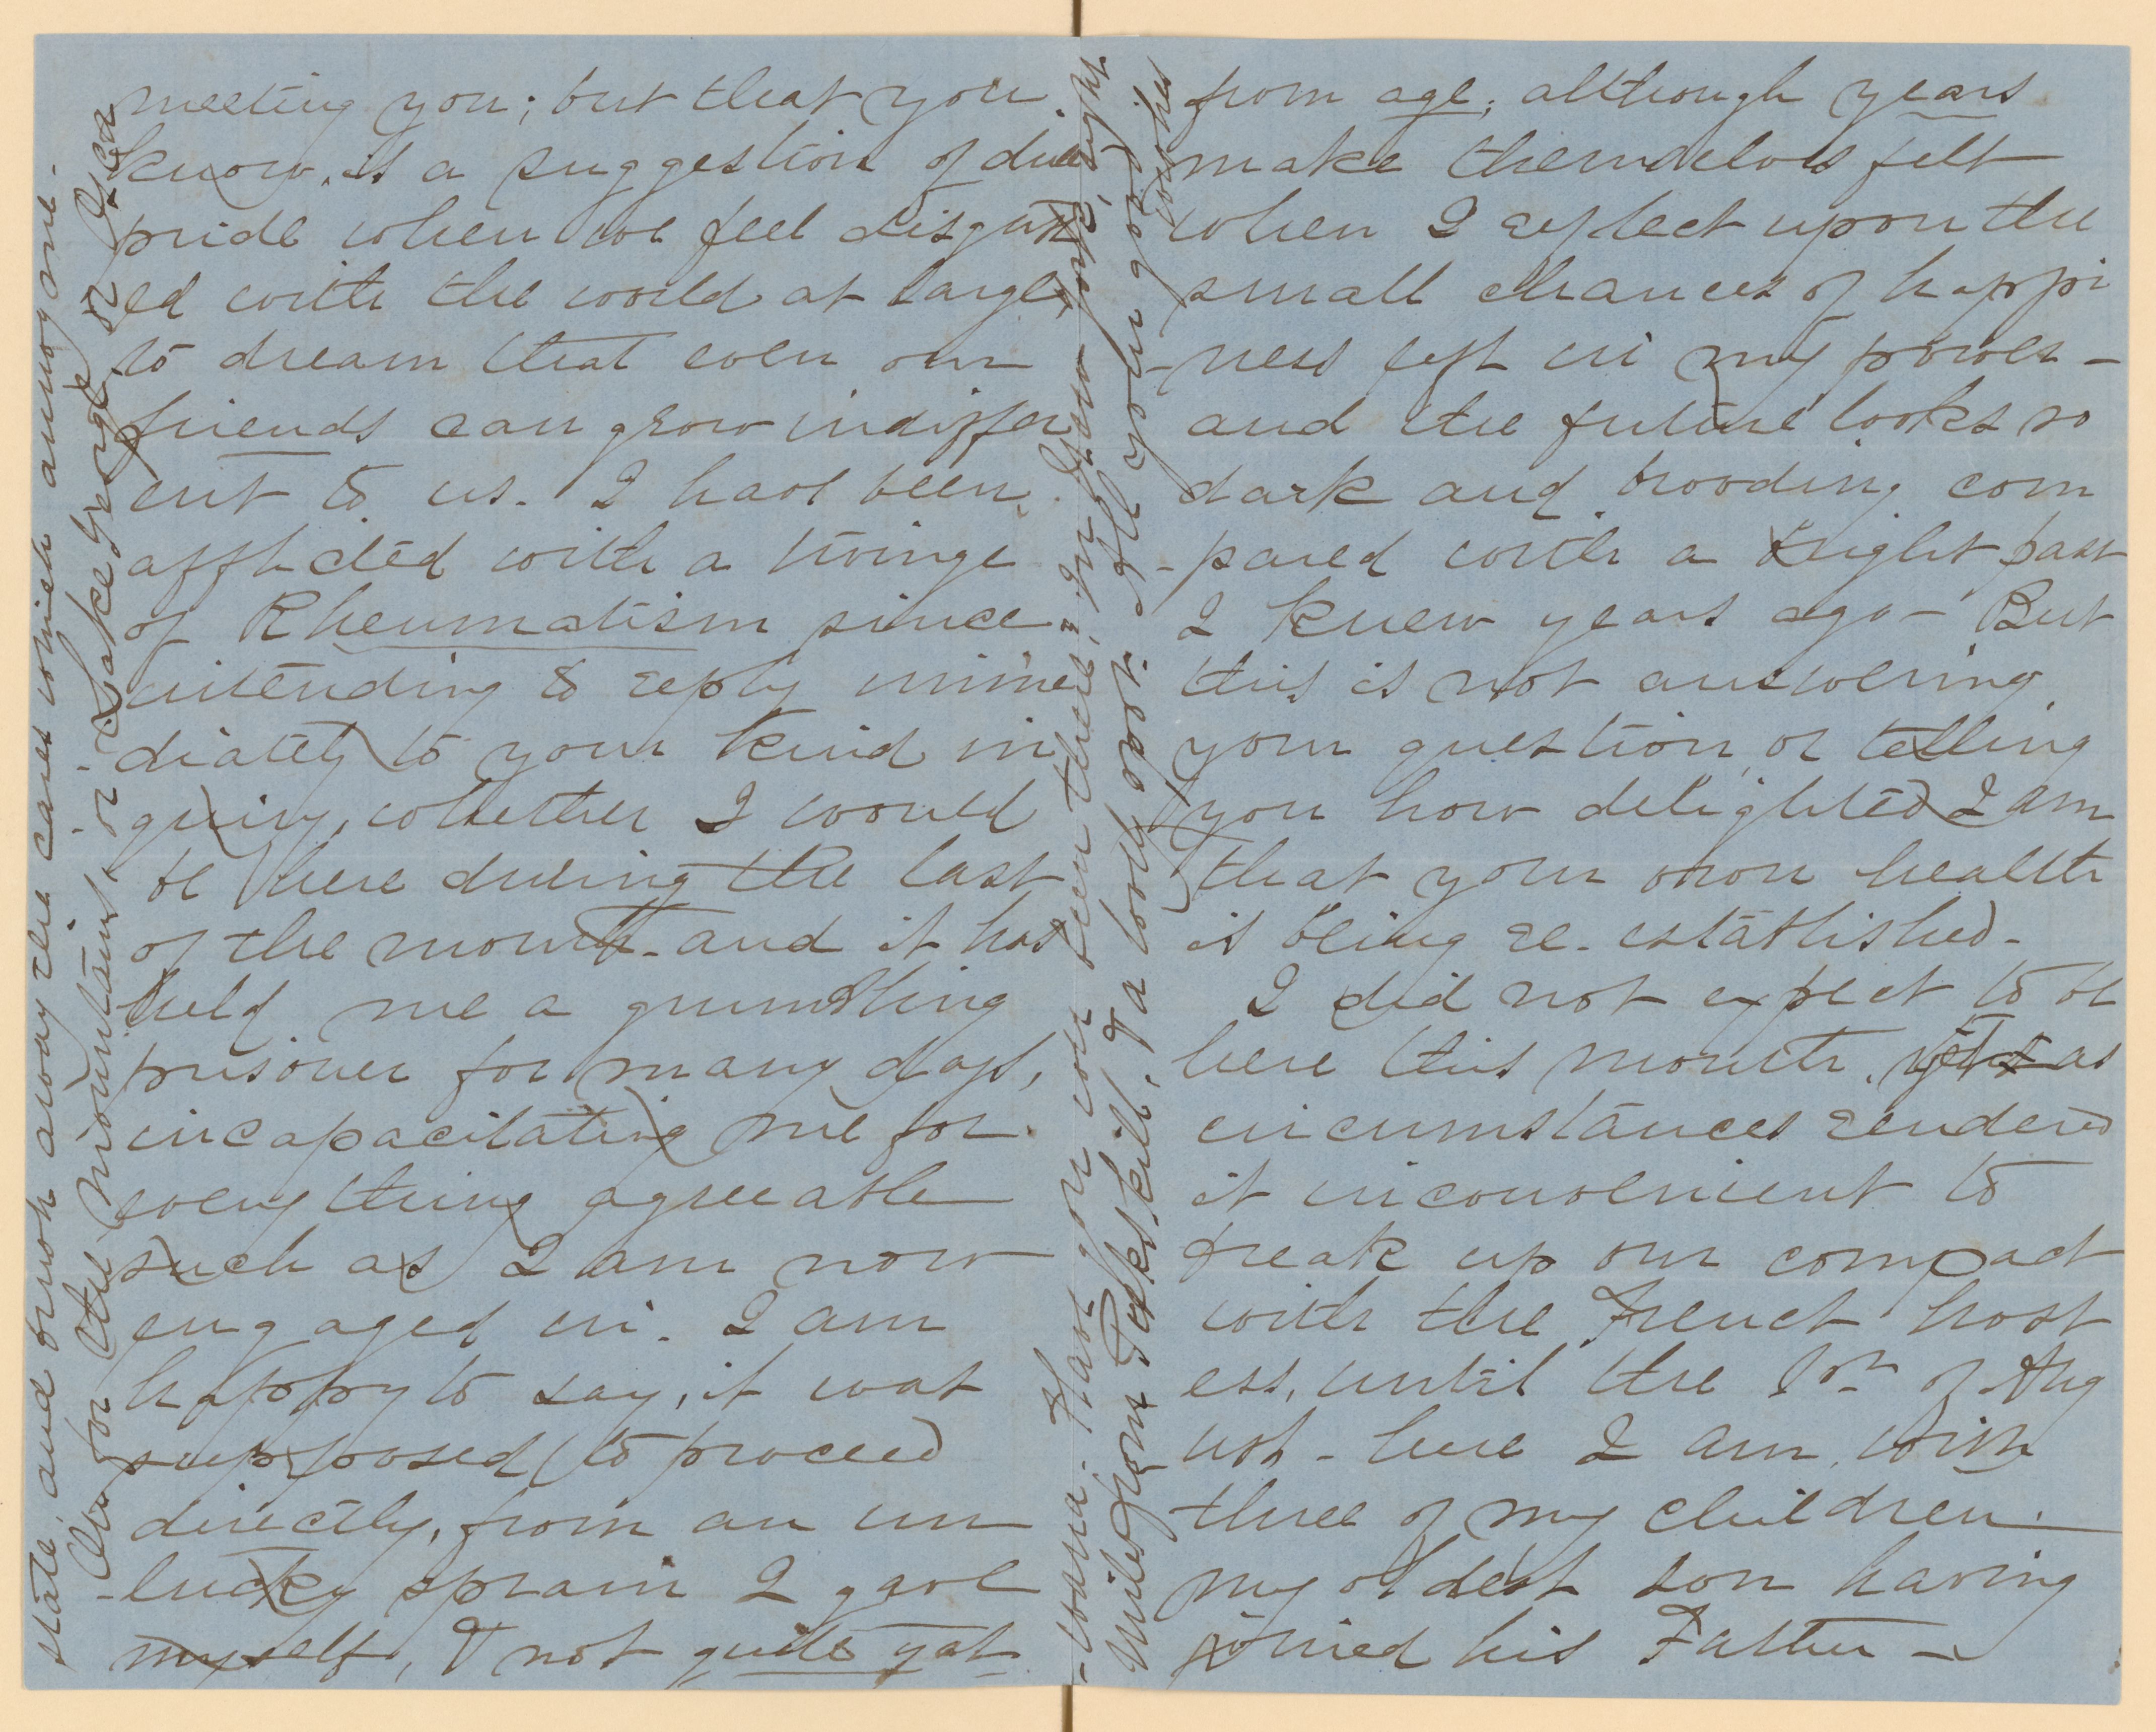 meeting you; but that you
know, is a suggestion of
pride when we feel disgust
ed with the world at large
to dream that even our
friends can grow indiffer
ent to us. I have been
afflicted with a twinge
of Rheumatism since
intending to reply imme
diately to your kind in
quiry, whether I would
be here during the last
of the month - and it has
held me a grumbling
prisoner for many days,
incapacitating me for
everything agreeable
such as I am now
engaged in. I am
happy to say, it was
supposed to proceed
directly, from an un
-lucky sprain I gave
myself, & not quite yet
from age; although years
make themselves felt
when I reflect upon the
small chances of happi
-ness left in my power -
and the future looks so
dark and brooding com
-pared with a bright past
I knew years ago - But
this is not answering
your question, or telling
you how delighted I am
that your own health
is being re-established -
I did not expect to be
here this month, yet as
circumstances rendered
it inconvenient to
break up our compact
with the French host
ess, until the 1st of Aug
ust - here I am, with
three of my children.
my oldest son having
joined his Father -
state, and brush away the cares which annoy one -
for the mountains, or Lake George or
- Have you ever been there, in New York, eight
miles from Peekskill, & a lovely spot. All your good
wishes